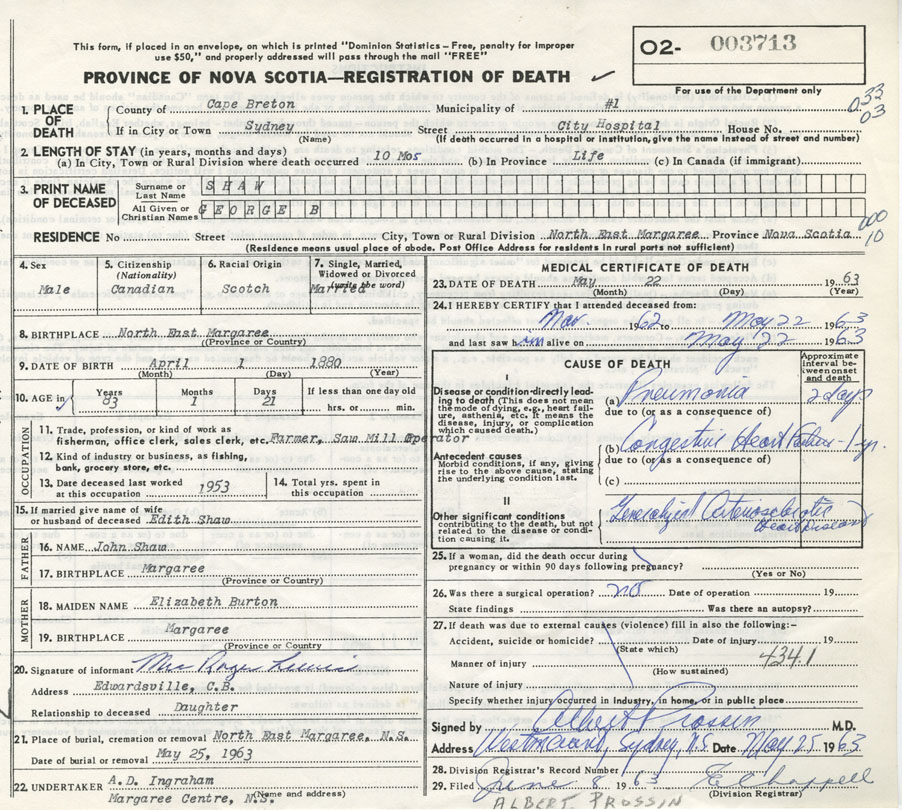 This form, if placed in an envelope, on which is printed "Dominion Statistics – Free, penalty for improper
use $50," and properly addressed will pass through the mail "FREE"
O2- 003713
PROVINCE OF NOVA SCOTIA—REGISTRATION OF DEATH ✓
For use of the Department only
033
03
1. PLACE OF DEATH
County of Cape Breton Municipality of #1
If in City or Town Sydney Street City Hospital House No.
(Name) (If death occurred in a hospital or institution, give the name instead of street and number)
2. LENGTH OF STAY (in years, months and days)
(a) In City, Town or Rural Division where death occurred 10 Mos (b) In Province Life (c) In Canada (if immigrant)
3. PRINT NAME OF DECEASED
Surname or Last Name SHAW
All Given or Christian Names GEORGE B
000
10
RESIDENCE No Street City, Town or Rural Division North East Margaree Province Nova Scotia
(Residence means usual place of abode. Post Office Address for residents in rural parts not sufficient)
4. Sex
Male
5. Citizenship (Nationality)
Canadian
6. Racial Origin
Scotch
7. Single, Married, Widowed or Divorced (write the word)
Married
8. BIRTHPLACE North East Margaree
(Province or Country)
9. DATE OF BIRTH April 1 1880
(Month) (Day) (Year)
10. AGE in
Years Months Days If less than one day old
83 1 21 hrs. or min.
OCCUPATION
11. Trade, profession, or kind of work as
fisherman, office clerk, sales clerk, etc. Farmer, Saw Mill Operator
12. Kind of industry or business, as fishing,
bank, grocery store, etc.
13. Date deceased last worked at this occupation 1953
14. Total yrs. spent in this occupation
15. If married give name of wife
or husband of deceased Edith Shaw
FATHER
16. NAME John Shaw
17. BIRTHPLACE Margaree
(Province or Country)
MOTHER
18. MAIDEN NAME Elizabeth Burton
19. BIRTHPLACE Margaree
(Province or Country)
20. Signature of informant Mrs Roger Lewis
Address Edwardsville, C.B.
Relationship to deceased Daughter
21. Place of burial, cremation or removal North East Margaree, N.S.
Date of burial or removal May 25, 1963
22. UNDERTAKER A.D. Ingraham
Margaree Centre, N.S. (Name and address)
MEDICAL CERTIFICATE OF DEATH
23. DATE OF DEATH May 22 1963
(Month) (Day) (Year)
24. I HEREBY CERTIFY that I attended deceased from:
Mar. 1962 to May 22 1963
and last saw him alive on May 22 1963
CAUSE OF DEATH
Approximate interval between onset and death
I
Disease or condition directly leading to death (This does not mean the mode of dying, e.g., heart failure, asthenia, etc. It means the disease, injury, or complication which caused death.)
(a) Pneumonia 2 days
due to (or as a consequence of)
Antecedent causes
Morbid conditions, if any, giving rise to the above cause, stating the underlying condition last.
(b) Congestive Heart Failure - 1 yr.
due to (or as a consequence of)
(c)
II
Other significant conditions
contributing to the death, but not related to the disease or condition causing it.
Generalized Arteriosclerotic
Heart Disease
25. If a woman, did the death occur during
pregnancy or within 90 days following pregnancy?
(Yes or No)
26. Was there a surgical operation? no Date of operation 19
State findings Was there an autopsy?
27. If death was due to external causes (violence) fill in also the following:–
Accident, suicide or homicide? Date of injury 19
(State which)
Manner of injury 434.1
(How sustained)
Nature of injury
Specify whether injury occurred in industry, in home, or in public place
Signed by Albert Prossin M.D.
Address Sydney, N.S. Date May 25 1963
28. Division Registrar's Record Number
29. Filed June 8 1963 Chappell
(Division Registrar)
ALBERT PROSSIN